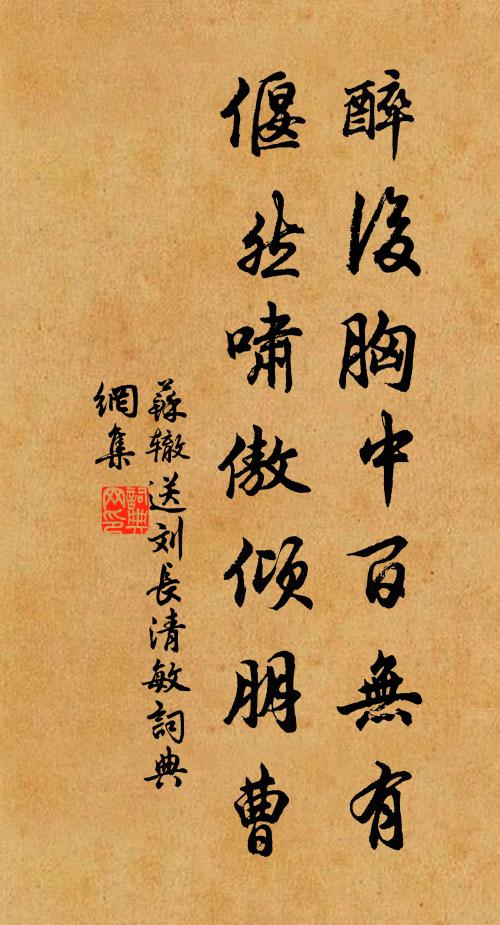 醉後胸中百無有
偃然嘯傲傾朋曹
蘇辙送刘長清敏詞典
網集
詞典
网印